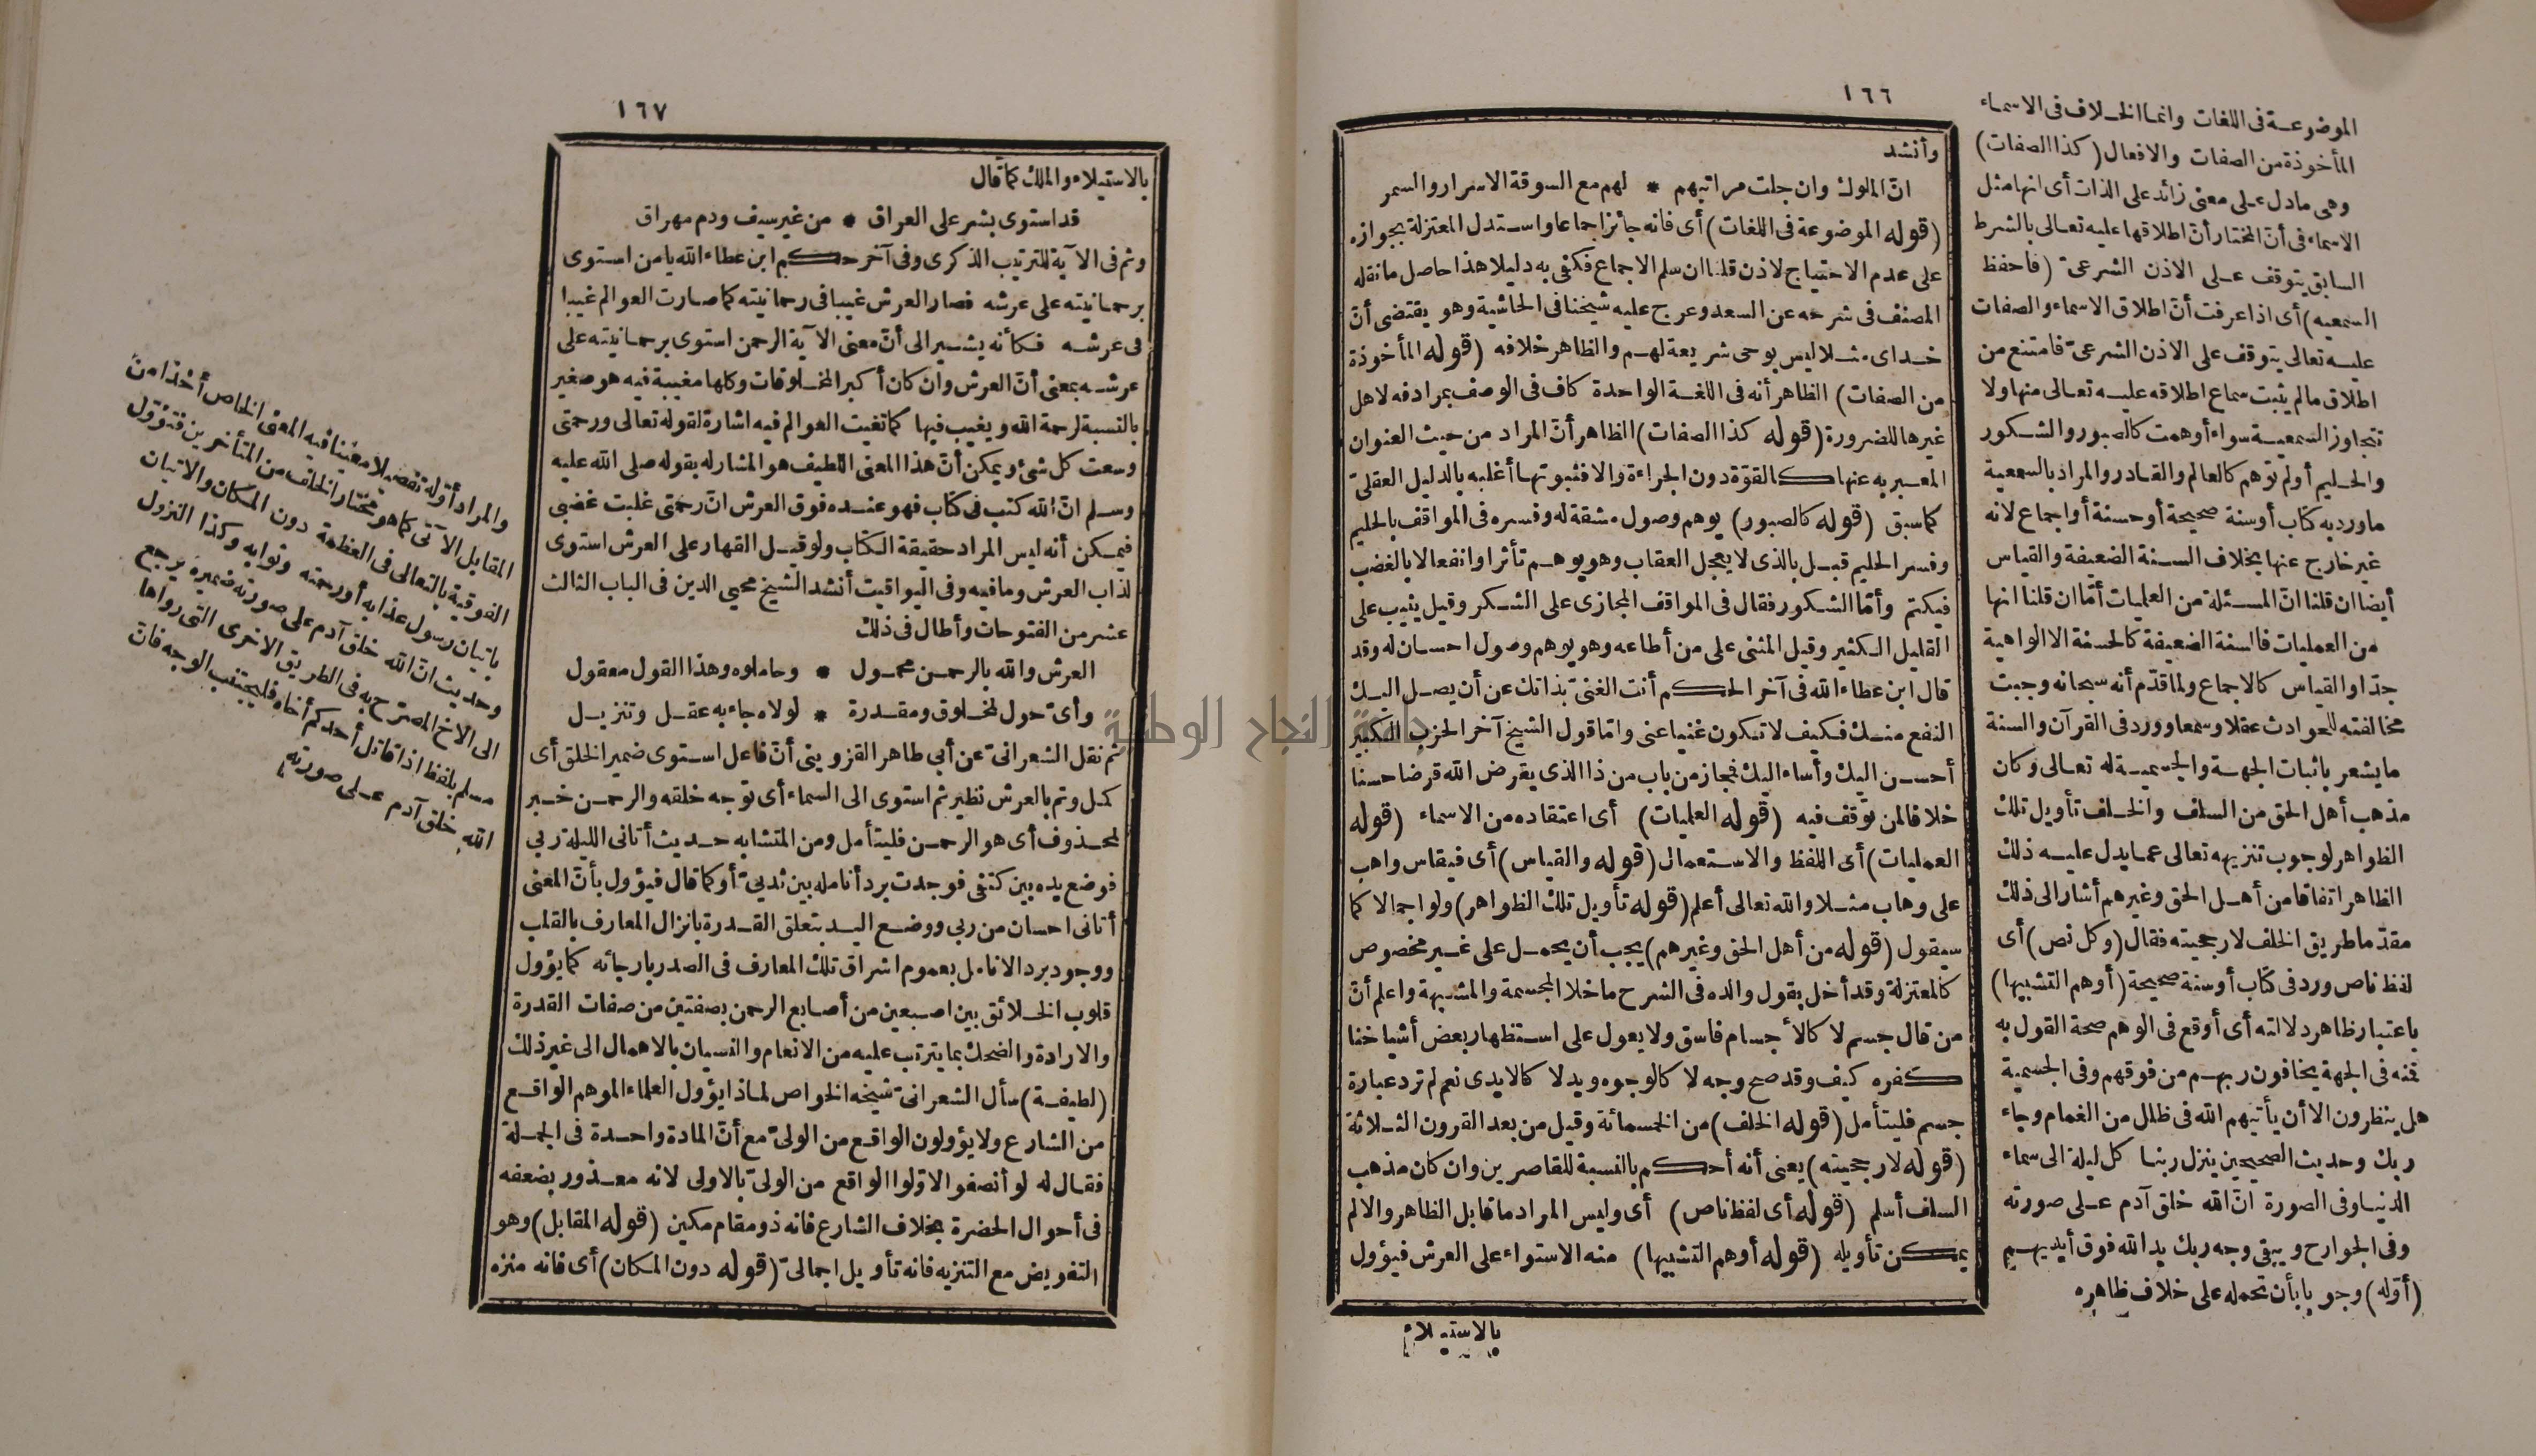 ١٦٦
الموضوعة فى اللغات وانما الخلاف فى الاسماء
المأخوذة من الصفات والافعال (كذا الصفات)
وهى مادل على معنى زائد على الذات أى انها مثل
الاسماء فى أنّ المختار أنّ اطلاقها عليه تعالى بالشرط
السابق يتوقف على الاذن الشرعىّ (فاحفظ
السمعيه) أى اذا عرفت أنّ اطلاق الاسماء والصفات
عليه تعالى يتوقف على الاذن الشرعىّ فامتنع من
اطلاق مالم يثبت سماع اطلاقه عليه تعالى منها ولا
تتجاوز السمعية سواء أوهمت كالصبور والشكور
والحليم أو لم توهم كالعالم والقادر والمراد بالسمعية
ماورد به كتاب أو سنة صحيحة أو حسنة أو اجماع لانه
غير خارج عنها بخلاف السنة الضعيفة والقياس
أيضا ان قلنا انّ المسئلة من العليات أمّا ان قلنا انها
من العمليات فالسنة الضعيفة كالحسنة الا الواهية
جدّا والقياس كالاجماع ولما قدّم أنه سبحانه وجبت
مخالفته للحوادث عقلا وسمعا وورد فى القرآن والسنة
مايشعر باثبات الجهة والجسمية له تعالى وكان
مذهب أهل الحق من السلف والخلف تأويل تلك
الظواهر لوجوب تنزيهه تعالى عمايدل عليه ذلك
الظاهر اتفاقا من أهل الحق وغيرهم أشار الى ذلك
مقدّما طريق الخلف لارجحيته فقال (وكل نص) أى
لفظ ناص ورد فى كتاب أو سنة صحيحة (أوهم التشبيها)
باعتبار ظاهر دلالته أى أوقع فى الوهم صحة القول به
فمنه فى الجهة يخافون ربهم من فوقهم وفى الجسمية
هل ينظرون الا أن يأتيهم الله فى ظلل من الغمام وجاء
ربك وحديث الصحيحين ينزل ربنا كل ليلة الى سماء
الدنيا وفى الصورة انّ الله خلق آدم على صورته
وفى الجوارح ويبقى وجه ربك يد الله فوق أيديهم
(أوّله) وجوبا بأن تحمله على خلاف ظاهره
وأنشد
انّ الملوك وان جلت مراتبهم * لهم مع السوقة الاسرار والسمر
(قوله الموضوعة فى اللغات) أى فانه جائز اجماعا واستدل المعتزلة بجوازه
على عدم الاحتياج لاذن قلنا ان سلم الاجماع فكفى به دليلا هذا حاصل مانقله
المصنف فى شرحه عن السعد وعرج عليه شيخنا فى الحاشية وهو يقتضى أنّ
خداى مثلا ليس بوحى شريعة لهم والظاهر خلافه (قوله المأخوذة
من الصفات) الظاهر أنه فى اللغة الواحدة كاف فى الوصف بمرادفه لاهل
غيرها للضرورة (قوله كذا الصفات) الظاهر أنّ المراد من حيث العنوان
المعبر به عنها كالقوّة دون الجراءة والا فثبوتها أغلبه بالدليل العقلىّ
كما سبق (قوله كالصبور) يوهم وصول مشقة له وفسره فى المواقف بالحليم
وفسر الحليم قبل بالذى لا يعجل العقاب وهو يوهم تأثرا وانفعالا بالغضب
فيكتم وأمّا الشكور فقال فى المواقف المجازى على الشكر وقيل يثيب على
القليل الكثير وقيل المثنى على من أطاعه وهو يوهم وصول احسان له وقد
قال ابن عطاء الله فى آخر الحكم أنت الغنىّ بذاتك عن أن يصل اليك
النفع منك فكيف لا تكون غنيا عنى وامّا قول الشيخ آخر الحزب الكبير
أحسن اليك وأساء اليك فمجاز من باب من ذا الذى يقرض الله قرضا حسنا
خلافا لمن توقف فيه (قوله العليات) أى اعتقاده من الاسماء (قوله
العمليات) أى اللفظ والاستعمال (قوله والقياس) أى فيقاس واهب
على وهاب مثلا والله تعالى أعلم (قوله تأويل تلك الظواهر) ولو اجمالا كما
سيقول (قوله من أهل الحق وغيرهم) يجب أن يحمل على غير مخصوص
كالمعتزلة وقد أخل بقول والده فى الشرح ماخلا المجسمة والمشبهة واعلم أنّ
من قال جسم لا كالأجسام فاسق ولا يعول على استظهار بعض أشياخنا
كفره كيف وقد صح وجه لا كالوجوه ويد لا كالايدى نعم لم ترد عبارة
جسم فليتأمل (قوله الخلف) من الخمسمائة وقيل من بعد القرون الثلاثة
(قوله لارجحيته) يعنى أنه أحكم بالنسبة للقاصرين وان كان مذهب
السلف أسلم (قوله أى لفظ ناص) أى وليس المراد ماقابل الظاهر والا لم
يمكن تأويله (قوله أوهم التشبيها) منه الاستواء على العرش فيؤول
بالاستيلاء
١٦٧
بالاستيلاء والملك كما قال
قد استوى بشر على العراق * من غير سيف ودم مهراق
وثم فى الآية للترتيب الذكرى وفى آخر حكم ابن عطاء الله يامن استوى
برحمانيته على عرشه فصار العرش غيبا فى رحمانيته كما صارت العوالم غيبا
فى عرشه فكأنه يشير الى أنّ معنى الآية الرحمن استوى برحمانيته على
عرشه بمعنى أنّ العرش وان كان أكبر المخلوقات وكلها مغيبة فيه هو صغير
بالنسبة لرحمة الله ويغيب فيها كما تغيب العوالم فيه اشارة لقوله تعالى ورحمتى
وسعت كل شئ ويمكن أنّ هذا المعنى اللطيف هو المشار له بقوله صلى الله عليه
وسلم انّ الله كتب فى كتاب فهو عنده فوق العرش انّ رحمتى غلبت غضبى
فيمكن أنه ليس المراد حقيقة الكتاب ولو قيل القهار على العرش استوى
لذاب العرش ومافيه وفى اليواقيت أنشد الشيخ محيى الدين فى الباب الثالث
عشر من الفتوحات وأطال فى ذلك
العرش والله بالرحمن محمول * وحاملوه وهذا القول معقول
وأىّ حول لمخلوق ومقدرة * لولاه جاء به عقل وتنزيل
ثم نقل الشعرانىّ عن أبى طاهر القزوينى أنّ فاعل استوى ضمير الخلق أى
كمل وتم بالعرش نظير ثم استوى الى السماء أى توجه خلقه والرحمن خبر
لمحذوف أى هو الرحمن فليتأمل ومن المتشابه حديث أتانى الليلة ربى
فوضع يده بين كتفى فوجدت برد أنامله بين ثديىّ أو كما قال فيؤول بأنّ المعنى
أتانى احسان من ربى ووضع اليد بتعلق القدرة بانزال المعارف بالقلب
ووجود برد الانامل بعموم اشراق تلك المعارف فى الصدر بارجائه كما يؤول
قلوب الخلائق بين اصبعين من أصابع الرحمن بصفتين من صفات القدرة
والارادة والضحك بما يترتب عليه من الانعام والنسيان بالاهمال الى غير ذلك
(لطيفة) سأل الشعرانىّ شيخه الخواص لماذا يؤول العلماء الموهم الواقع
من الشارع ولا يؤولون الواقع من الولىّ مع أنّ المادة واحدة فى الجملة
فقال له لو أنصفوا لاوّلوا الواقع من الولىّ بالاولى لانه معذور بضعفه
فى أحوال الحضرة بخلاف الشارع فانه ذو مقام مكين (قوله المقابل) وهو
التفويض مع التنزيه فانه تأويل اجمالىّ (قوله دون المكان) أى فانه منزه
والمراد أوّله تفصيلا معينا فيه المعنى الخاص أخذا من
المقابل الآتى كما هو مختار الخلف من المتأخرين فتؤوّل
الفوقية بالتعالى فى العظمة دون المكان والاتيان
باتيان رسول عذابه أو رحمته وثوابه وكذا النزول
وحديث انّ الله خلق آدم على صورته ضميره يرجع
الى الاخ المصرّح به فى الطريق الاخرى التى رواها
مسلم بلفظ اذا قاتل أحدكم أخاه فليجتنب الوجه فانّ
الله خلق آدم على صورته
جامعة النجاح الوطنية